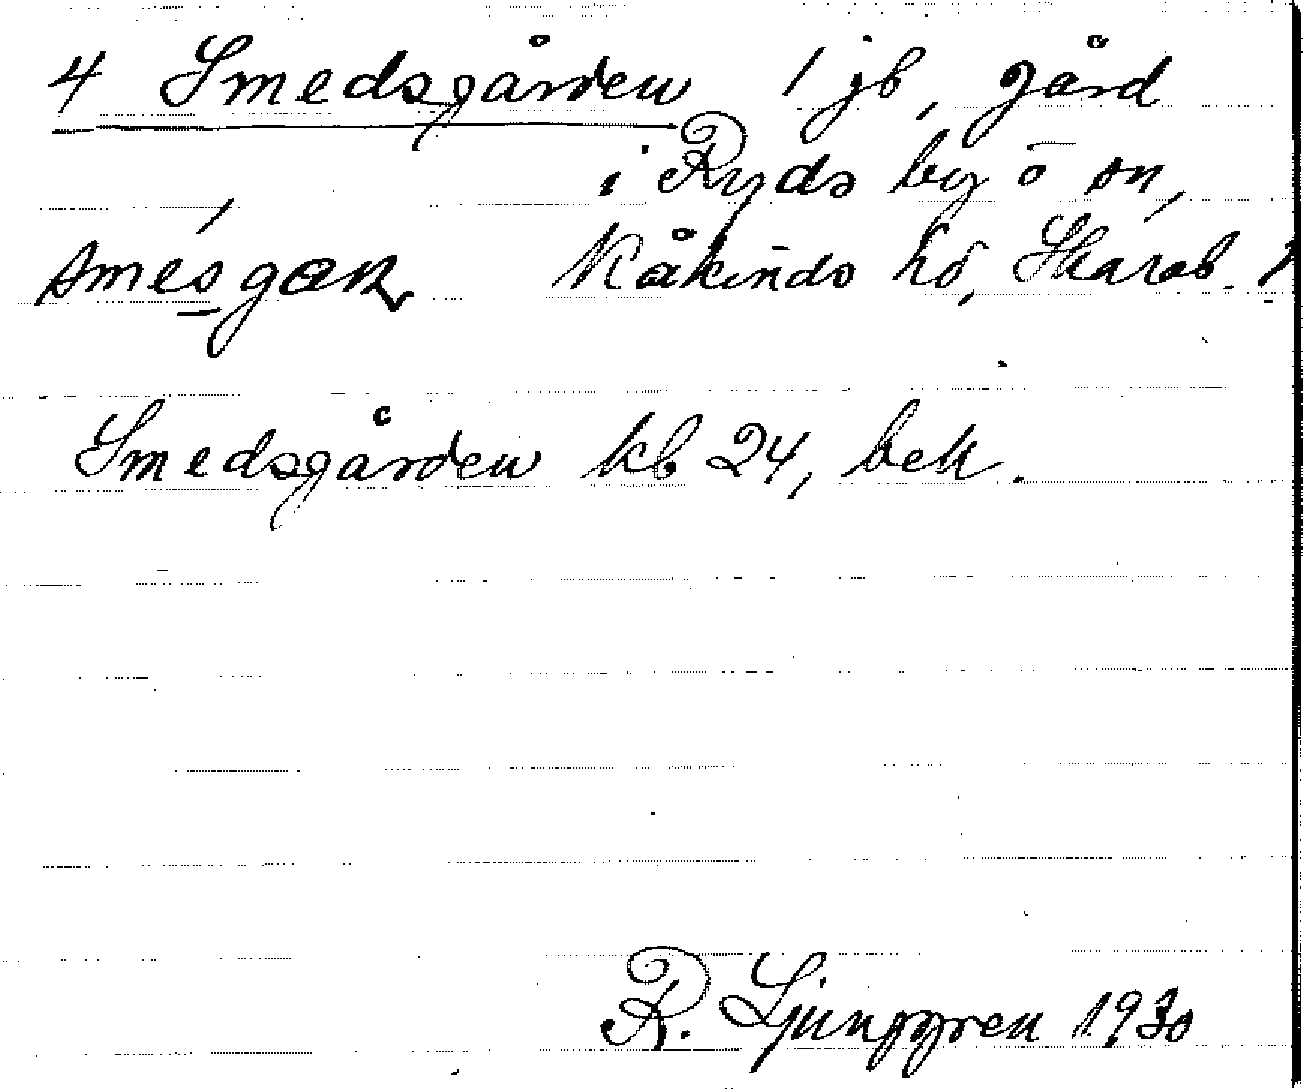 4 Smedsgården 1 jb, gård
i Ryds by o sn,
Kåkinds hd, Skarab.
Smedsgården kb 24, bek.
R. Ljunggren 1930